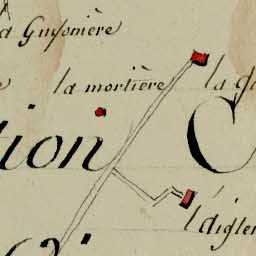 a Guyonière
la mortière la
tion C
l'aigle